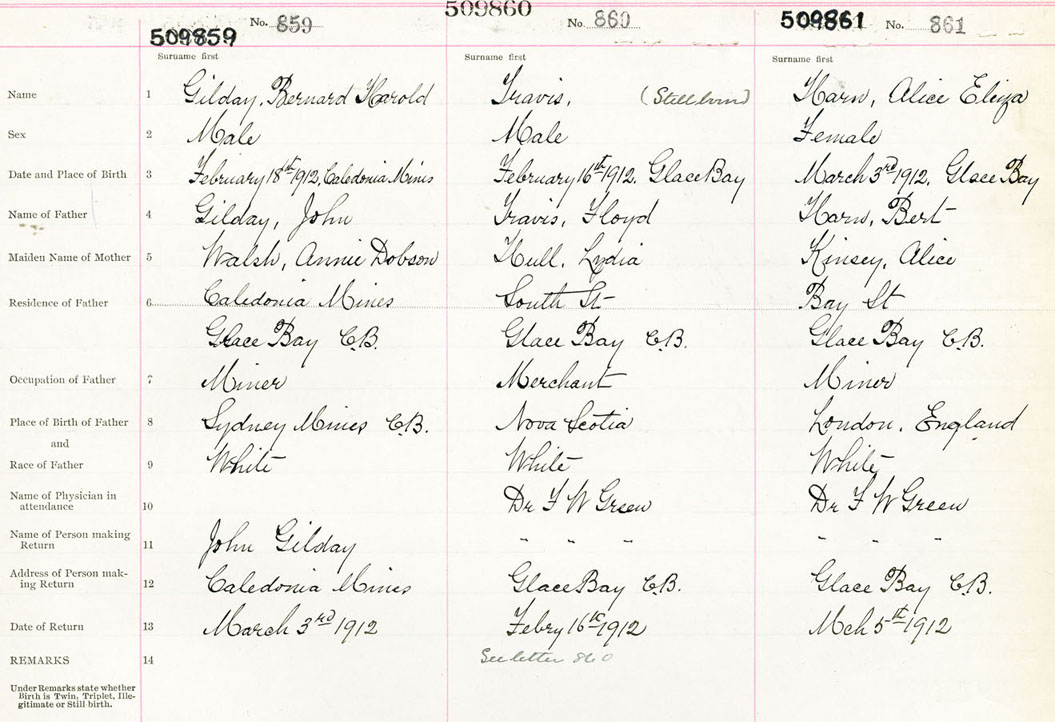 509859 No. 859 509860 No. 860 509861 No. 861
Surname first Surname first Surname first
Name 1 Gilday, Bernard Harold Travis, (Stillborn) Harn, Alice Eliza
Sex 2 Male Male Female
Date and Place of Birth 3 February 18th 1912, Caledonia Mines February 16th 1912. Glace Bay March 3rd 1912, Glace Bay
Name of Father 4 Gilday, John Travis, Floyd Harn, Bert
Maiden Name of Mother 5 Walsh, Annie Dobson Hull, Lydia Kinsey, Alice
Residence of Father 6 Caledonia Mines South St Bay St
Glace Bay C.B. Glace Bay C.B. Glace Bay C.B.
Occupation of Father 7 Miner Merchant Miner
Place of Birth of Father 8 Sydney Mines C.B. Nova Scotia London, England
and
Race of Father 9 White White White
Name of Physician in
attendance 10 Dr F W Green Dr F W Green
Name of Person making
Return 11 John Gilday " " " " " "
Address of Person mak-
ing Return 12 Caledonia Mines Glace Bay C.B. Glace Bay C.B.
Date of Return 13 March 3rd 1912 Febry 16th 1912 Mch 5th 1912
REMARKS 14 See letter 860
Under Remarks state whether
Birth is Twin, Triplet, Ille-
gitimate or Still birth.